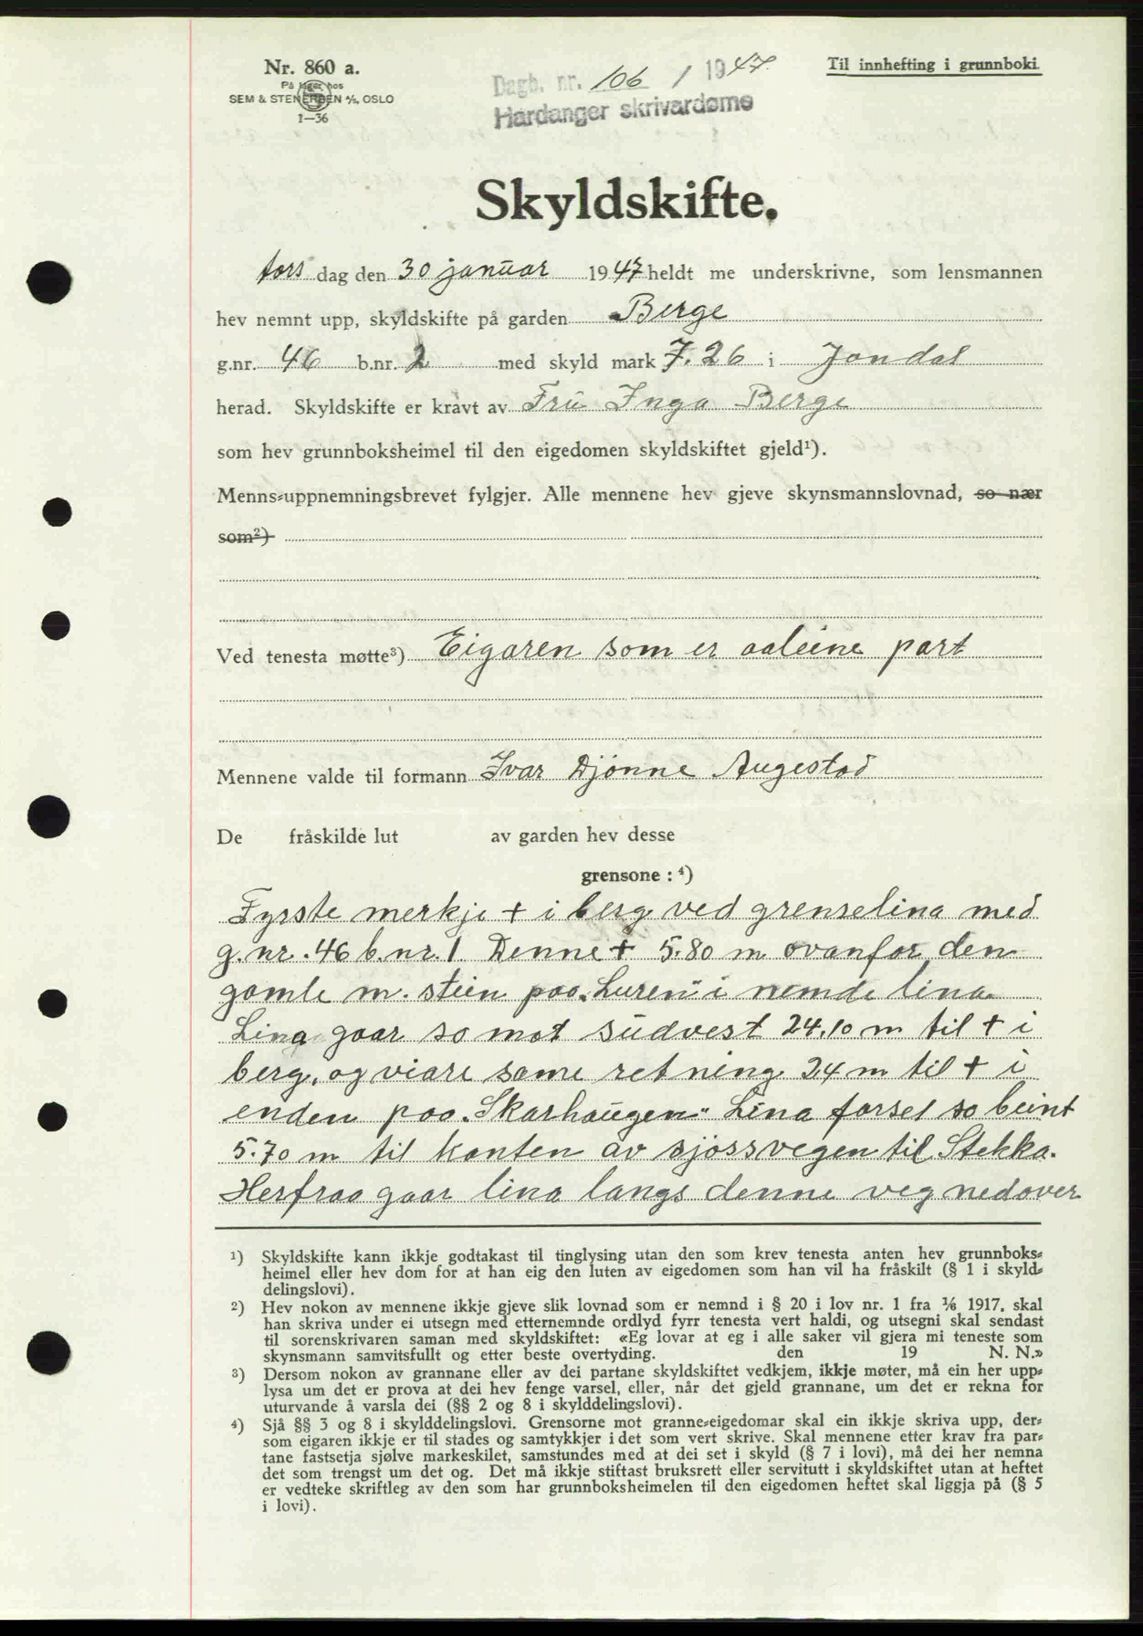 Nr. 860 a.
På lager hos
SEM & STENERSEN A/S, OSLO
1—36
Dagb. nr. 106 / 1947.
Hardanger skrivardøme
Til innhefting i grunnboki
Skyldskifte.
tors dag den 30 januar 1947 heldt me underskrivne, som lensmannen
hev nemnt upp, skyldskifte på garden Berge
g.nr. 46 b.nr. 2 med skyld mark 7.26 i Jondal
herad. Skyldskifte er kravt av Fru Inga Berge
som hev grunnboksheimel til den eigedomen skyldskiftet gjeld¹).
Menns-uppnemningsbrevet fylgjer. Alle mennene hev gjeve skynsmannslovnad, so nær
som²)
Ved tenesta møtte³) Eigaren som er aaleine part
Mennene valde til formann Ivar Djønne Augestad
De fråskilde lut av garden hev desse
grensone : ⁴)
Fyrste merkje + i berg ved grenselina med
g.nr. 46 b.nr. 1 Denne + 5.80 m ovanfor den
gamle m. stein paa „Luren" i nemde lina.
Lina gaar so mot südvest 24.10 m til + i
berg, og viare same retning 24 m til + i
enden paa „Skarhaugen" Lina forset so beint
5.70 m til kanten av sjøssvegen til Stekka.
Herfraa gaar lina langs denne veg nedover
¹) Skyldskifte kann ikkje godtakast til tinglysing utan den som krev tenesta anten hev grunnboks-
heimel eller hev dom for at han eig den luten av eigedomen som han vil ha fråskilt (§ 1 i skyld-
delingslovi).
²) Hev nokon av mennene ikkje gjeve slik lovnad som er nemnd i § 20 i lov nr. 1 fra ⅙ 1917, skal
han skriva under ei utsegn med etternemnde ordlyd fyrr tenesta vert haldi, og utsegni skal sendast
til sorenskrivaren saman med skyldskiftet: «Eg lovar at eg i alle saker vil gjera mi teneste som
skynsmann samvitsfullt og etter beste overtyding. den 19 N. N.»
³) Dersom nokon av grannane eller av dei partane skyldskiftet vedkjem, ikkje møter, må ein her upp-
lysa um det er prova at dei hev fenge varsel, eller, når det gjeld grannane, um det er rekna for
uturvande å varsla dei (§§ 2 og 8 i skylddelingslovi).
⁴) Sjå §§ 3 og 8 i skylddelingslovi. Grensorne mot granne-eigedomar skal ein ikkje skriva upp, der-
som eigaren ikkje er til stades og samtykkjer i det som vert skrive. Skal mennene etter krav fra par-
tane fastsetja sjølve markeskilet, samstundes med at dei set i skyld (§ 7 i lovi), må dei her nemna
det som trengst um det og. Det må ikkje stiftast bruksrett eller servitutt i skyldskiftet utan at heftet
er vedteke skriftleg av den som har grunnboksheimelen til den eigedomen heftet skal liggja på (§ 5
i lovi).